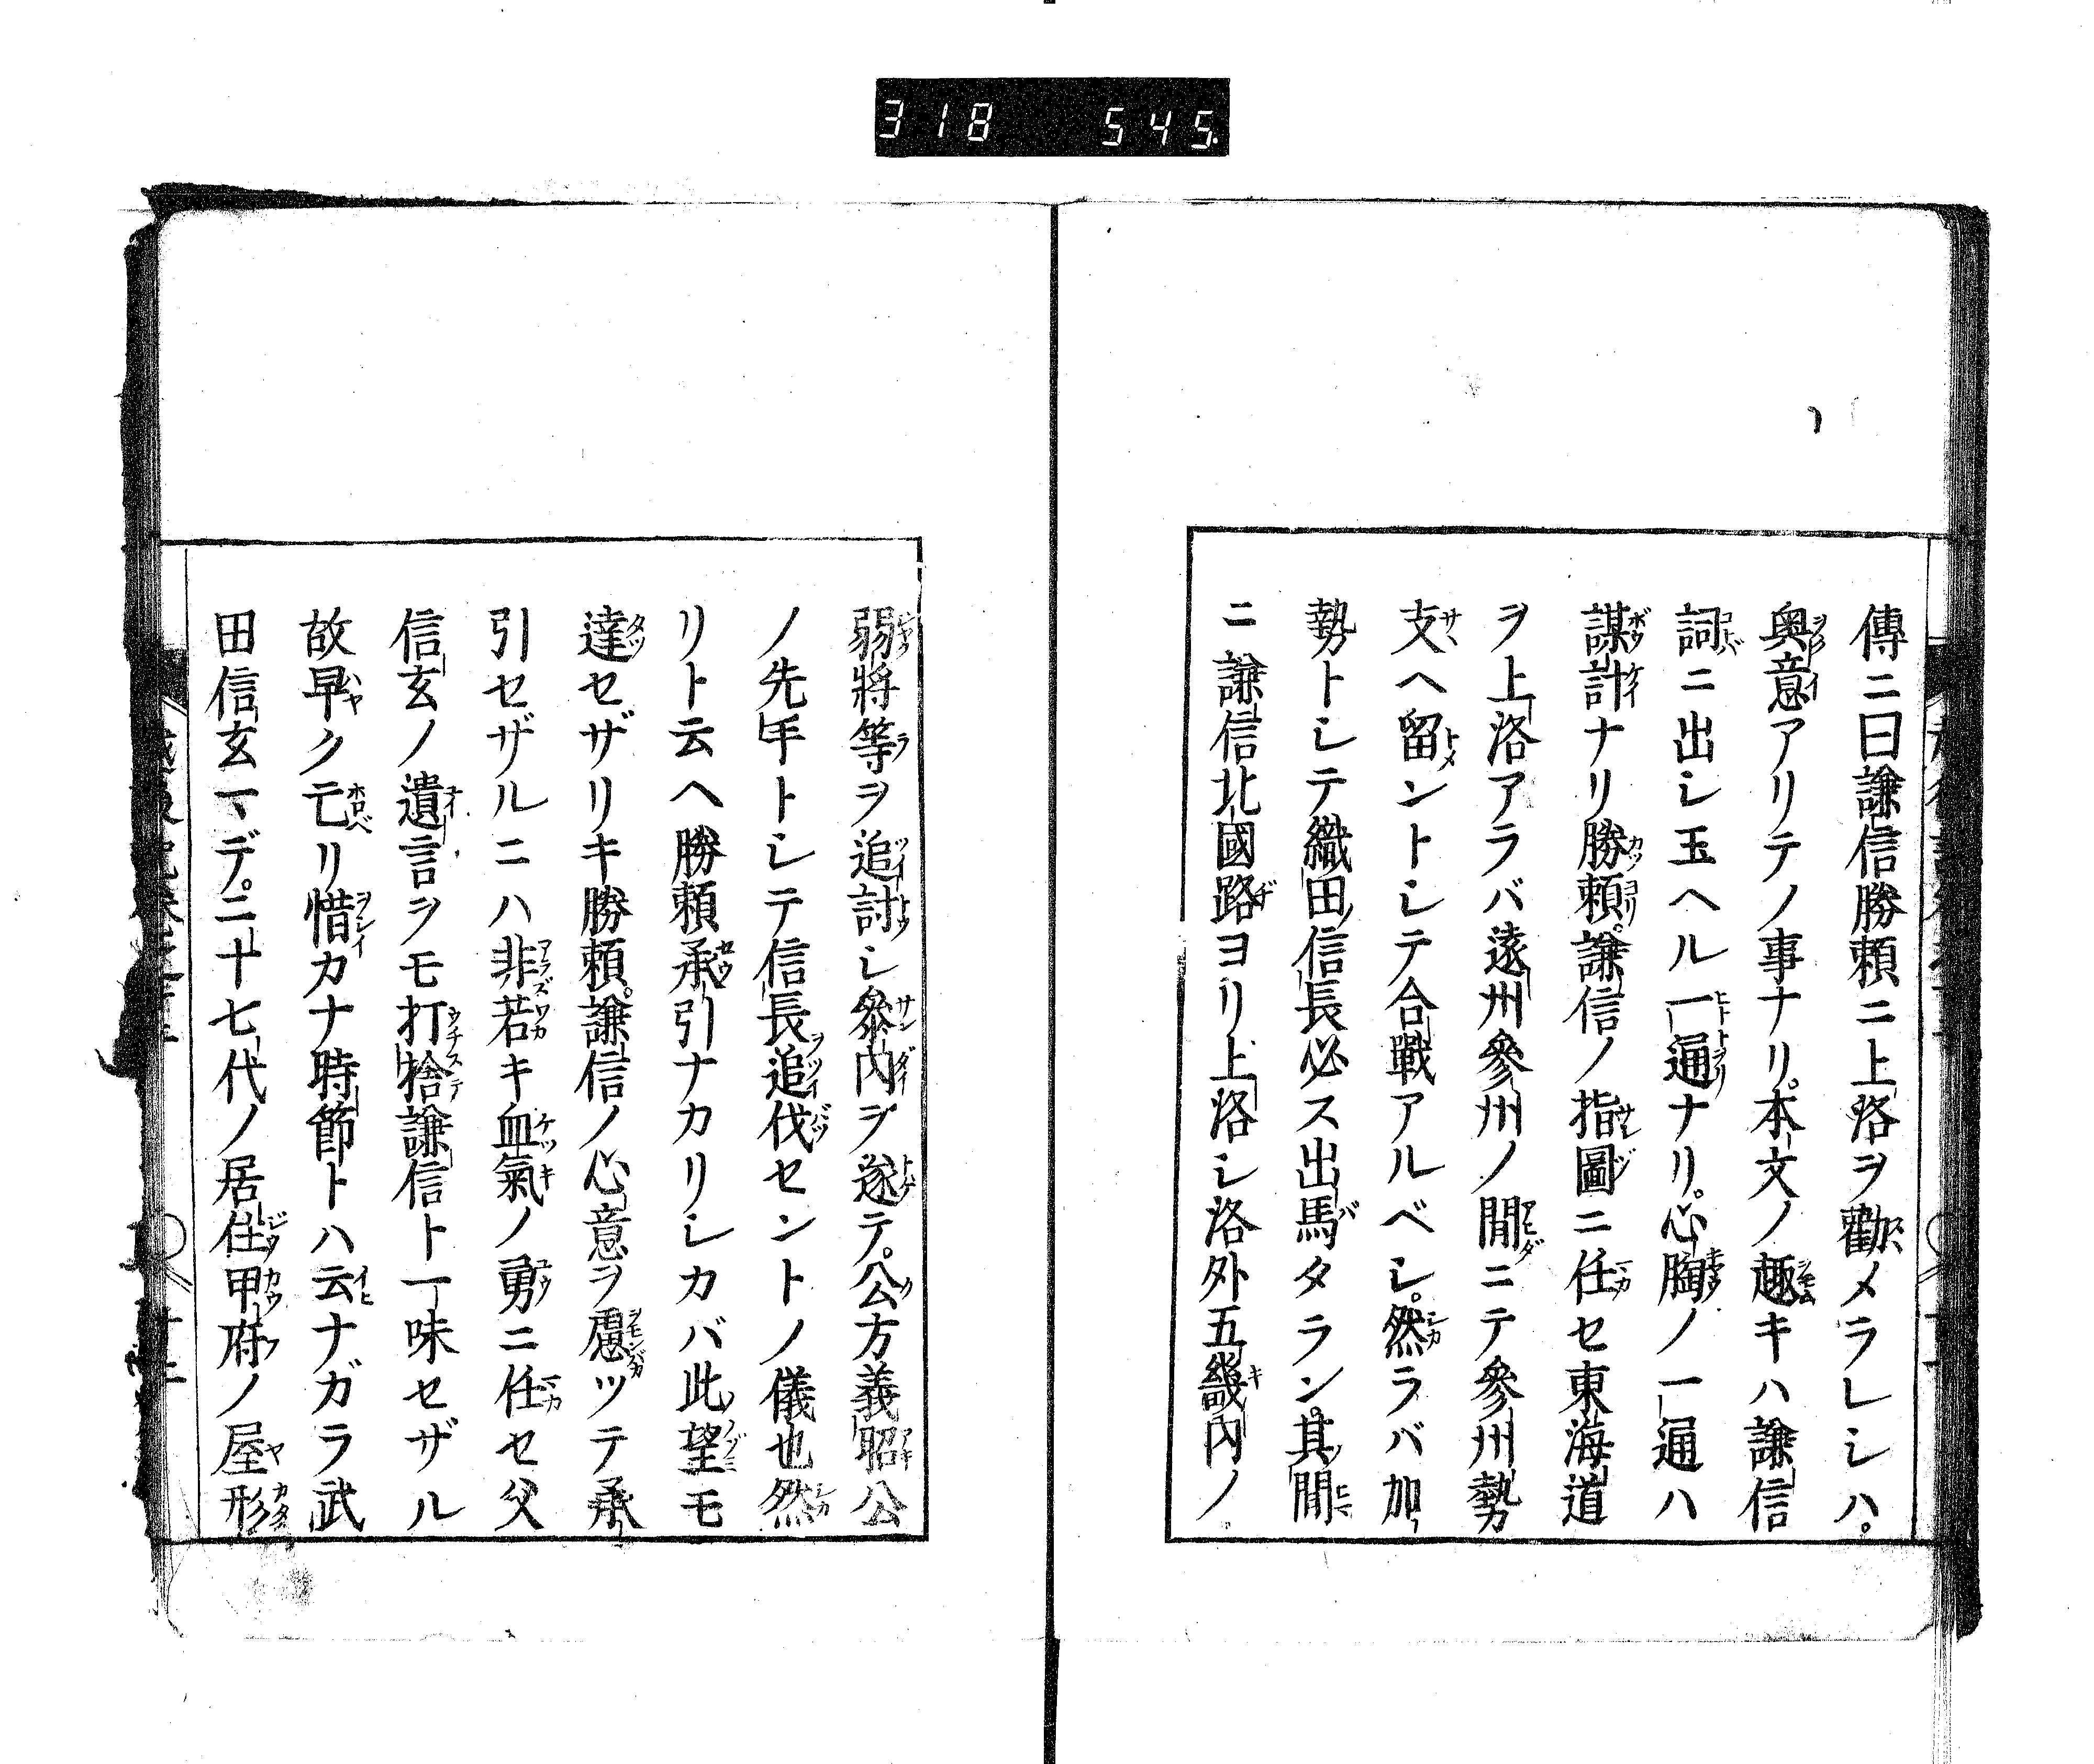 318 545
傳ニ曰謙信勝頼ニ上洛ヲ勸メラレシハ。
奥意アリテノ事ナリ。本文ノ趣キハ謙信
詞ニ出シ玉ヘル一通ナリ。心胸ノ一通ハ
謀計ナリ勝頼。謙信ノ指圖ニ任セ東海道
ヲ上洛アラバ遠州參州ノ間ニテ參州勢
支ヘ留ントシテ合戰アルベシ。然ラバ加
勢トシテ織田信長必ス出馬タラン。其間
ニ謙信北國路ヨリ上洛シ洛外五畿内ノ
弱將等ヲ追討シ參内ヲ遂テ。公方義昭公
ノ先手トシテ信長追伐セントノ儀也然
リト云ヘ勝頼承引ナカリシカバ此望モ
達セザリキ勝頼。謙信ノ心意ヲ慮ツテ承
引セザルニハ非若キ血氣ノ勇ニ任セ父
信玄ノ遺言ヲモ打捨謙信ト一味セザル
故早ク亡リ惜カナ時節トハ云ナガラ武
田信玄マデ。二十七代ノ居住甲府ノ屋形